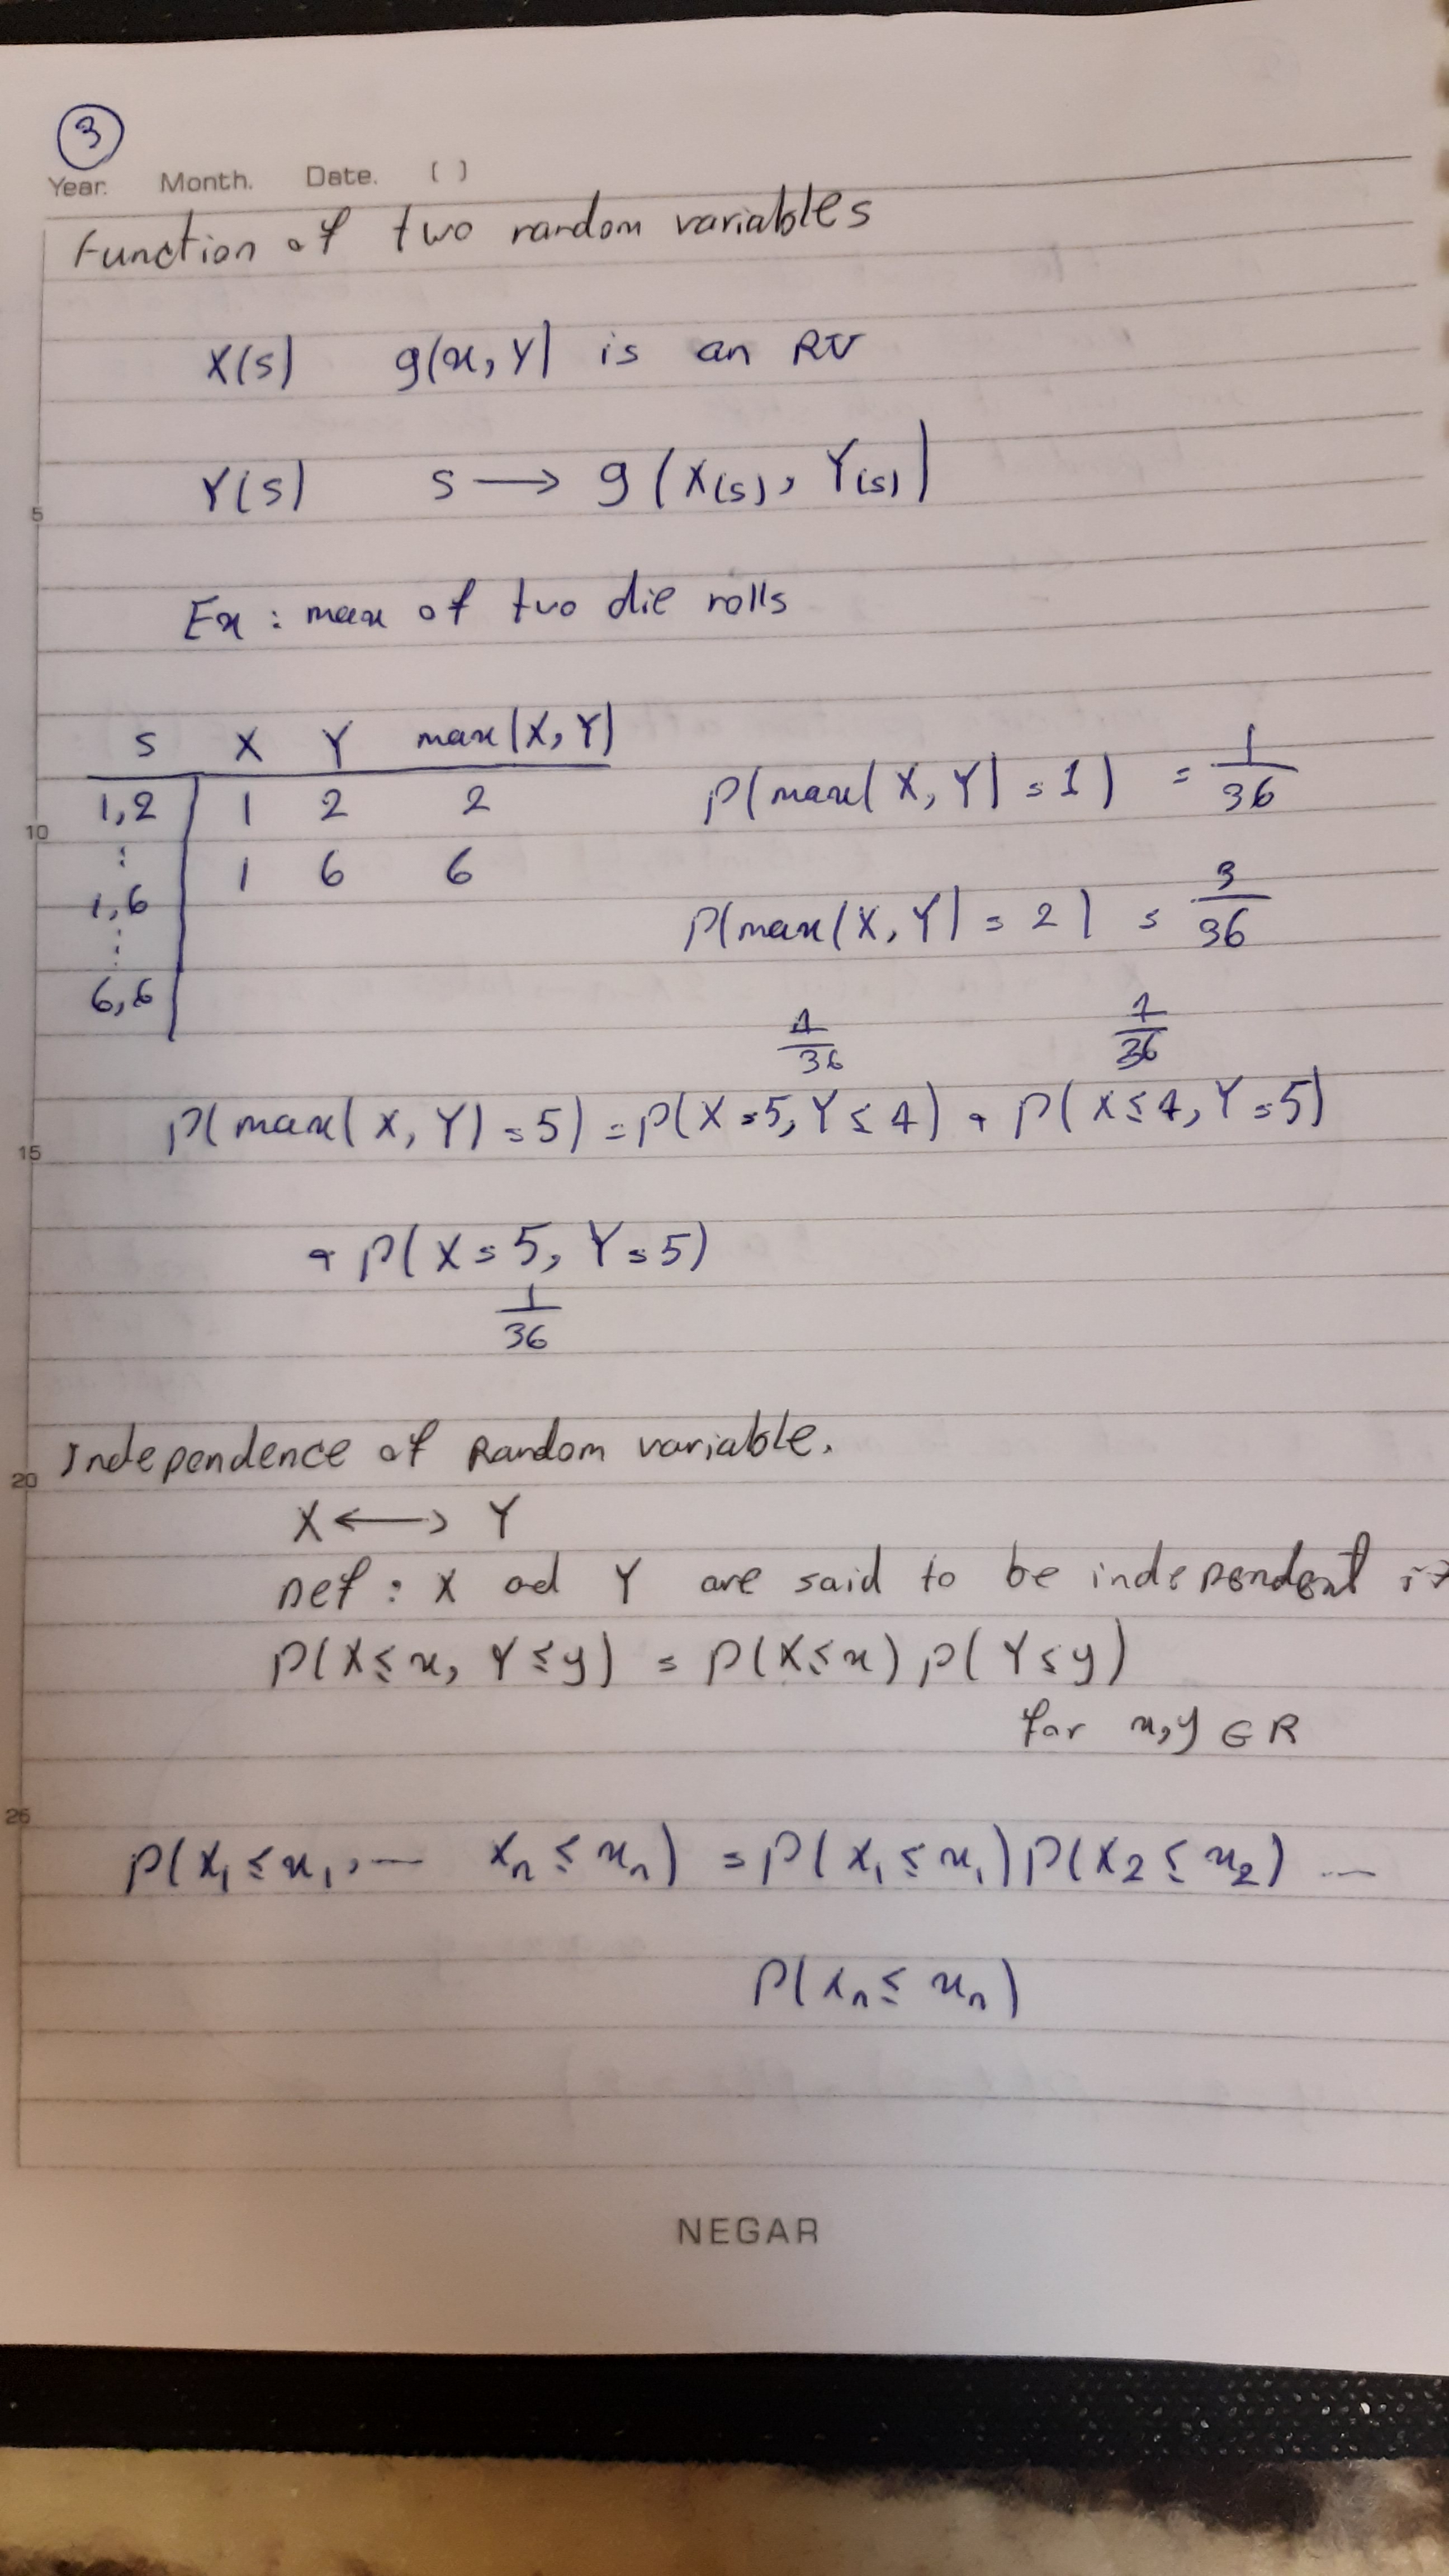 3
Year. Month. Date. ( )
Function of two random variables
X(s) g(x, Y) is an RV
Y(s) s → g (X(s), Y(s))
5
Ex : max of two die rolls
s X Y max(X, Y)
1,2 1 2 2
P(max(X, Y) = 1) = 1/36
10
⋮ 1 6 6
1,6
P(max(X, Y) = 2) = 3/36
⋮
6,6
4/36 4/36
P(max(X, Y) = 5) = P(X = 5, Y ≤ 4) + P(X ≤ 4, Y = 5)
15
+ P(X = 5, Y = 5)
1/36
Independence of Random variable.
20
X ⟷ Y
Def : X ad Y are said to be independent if
P(X ≤ x, Y ≤ y) = P(X ≤ x) P(Y ≤ y)
for x, y ∈ R
25
P(X₁ ≤ x₁, ... Xₙ ≤ xₙ) = P(X₁ ≤ x₁) P(X₂ ≤ x₂) ...
P(Xₙ ≤ xₙ)
NEGAR